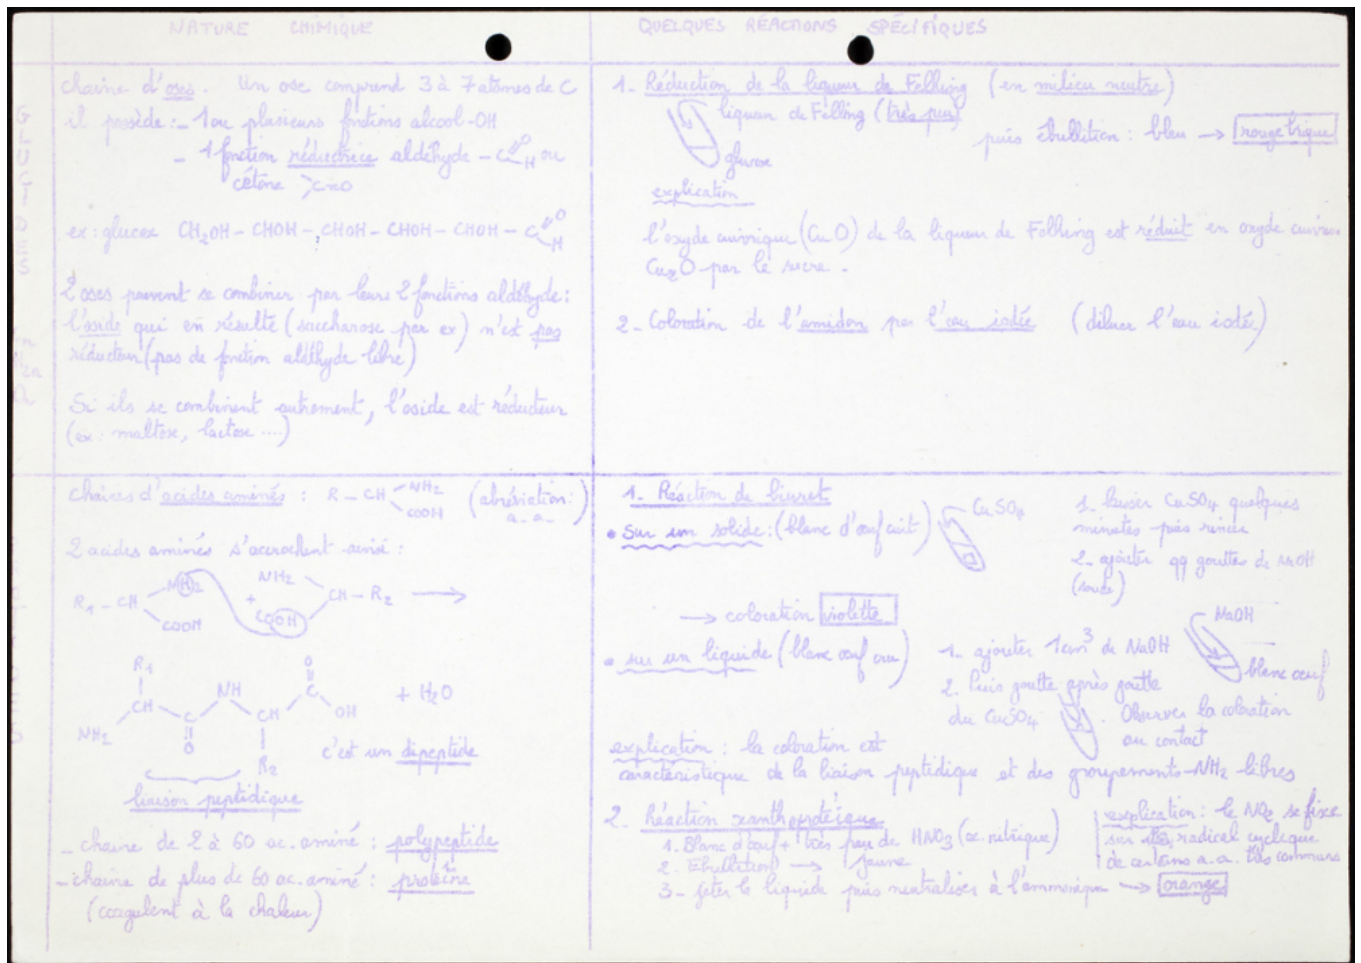 NATURE CHIMIQUE
QUELQUES RÉACTIONS SPÉCIFIQUES
GLUCIDES
chaine d'oses. Un ose comprend 3 à 7 atomes de C
il possède : - 1 ou plusieurs fonctions alcool -OH
- 1 fonction réductrice aldéhyde - C O H ou
cétone >C=O
ex : glucose CH2OH - CHOH - CHOH - CHOH - CHOH - C O H
2 oses peuvent se combiner par leurs 2 fonctions aldéhyde :
l'oside qui en résulte (saccharose par ex) n'est pas
réducteur (pas de fonction aldéhyde libre)
Si ils se combinent autrement, l'oside est réducteur
(ex : maltose, lactose ....)
1- Réduction de la liqueur de Felhing (en milieu neutre)
liqueur de Felling (très peu)
glucose
puis ébullition : bleu → rouge brique
explication
l'oxyde cuivrique (CuO) de la liqueur de Felhing est réduit en oxyde cuivreux
Cu2O par le sucre.
2- Coloration de l'amidon par l'eau iodée (diluer l'eau iodée)
chaines d'acides aminés : R - CH NH2 COOH (abréviation :
a.a.)
2 acides aminés s'accrochent ainsi :
R1 - CH NH2 COOH + NH2 COOH CH - R2 →
R1
CH
NH2
C
O
NH
CH
R2
C
O
OH
+ H2O
c'est un dipeptide
liaison peptidique
- chaine de 2 à 60 ac. aminé : polypeptide
- chaine de plus de 60 ac. aminé : protéine
(coagulent à la chaleur)
1- Réaction de biuret
• Sur un solide : (blanc d'œuf cuit)
CuSO4
1- laisser CuSO4 quelques
minutes puis rincer
2- ajouter qq gouttes de NaOH
(soude)
→ coloration violette
• sur un liquide (blanc œuf cru)
1- ajouter 1cm3 de NaOH
2. Puis goutte après goutte
du CuSO4.
NaOH
blanc œuf
Observer la coloration
au contact
explication : la coloration est
caractéristique de la liaison peptidique et des groupements -NH2 libres
2- Réaction xanthoprotéique
1. Blanc d'œuf + très peu de HNO3 (ac. nitrique)
2. Ebullition → jaune
3- Jeter le liquide puis neutraliser à l'ammoniaque → orange
explication : le NO2 se fixe
sur radical cyclique
de certains a.a. très communs